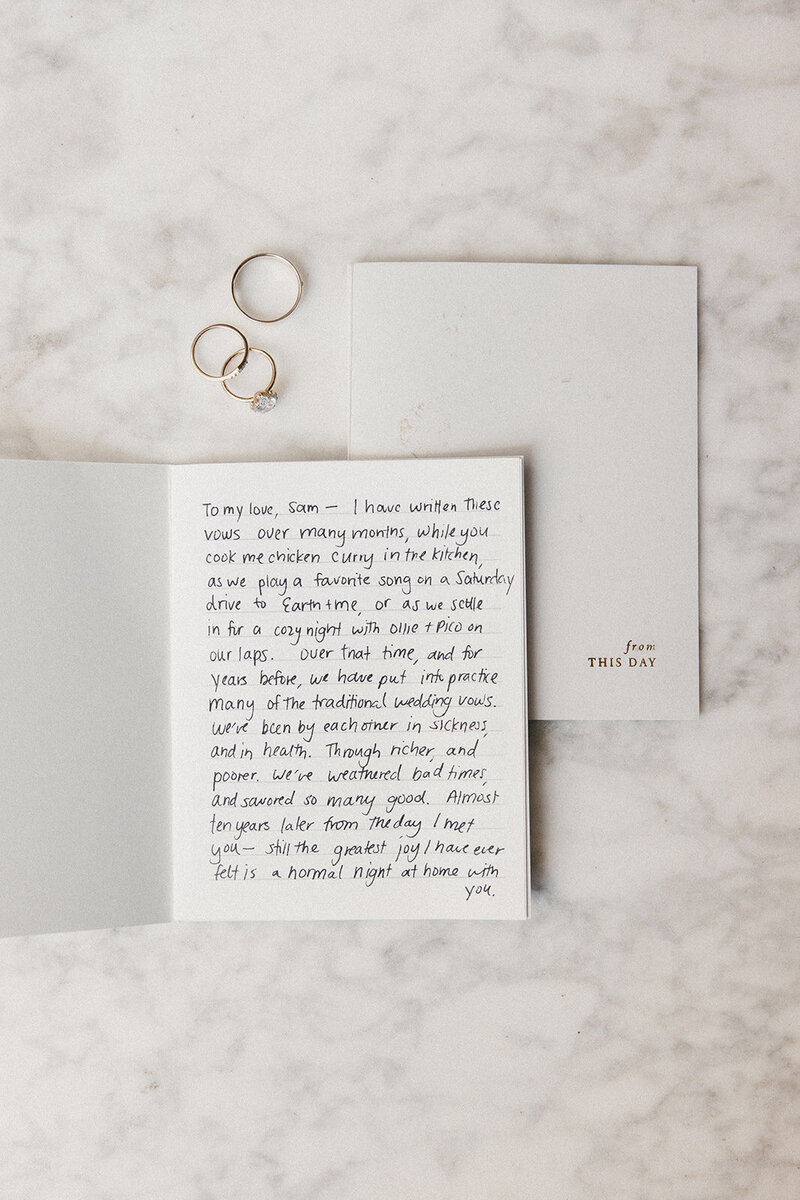 To my love, Sam — I have written these
vows over many months, while you
cook me chicken curry in the kitchen,
as we play a favorite song on a Saturday
drive to Earth + me, or as we settle
in for a cozy night with Ollie + Pico on
our laps. Over that time, and for
years before, we have put into practice
many of the traditional wedding vows.
We've been by each other in sickness,
and in health. Through richer, and
poorer. We've weathered bad times,
and savored so many good. Almost
ten years later from the day I met
you — still the greatest joy I have ever
felt is a normal night at home with
you.
from
THIS DAY